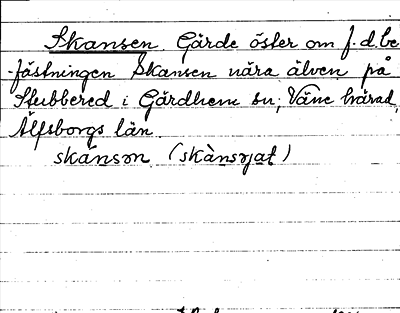 Skansen. Gärde öster om f. d. be-
fästningen Skansen nära älven på
Stubbered i Gärdhem sn, Väne härad,
Älfsborgs län.
skànsən (skànsŋat)